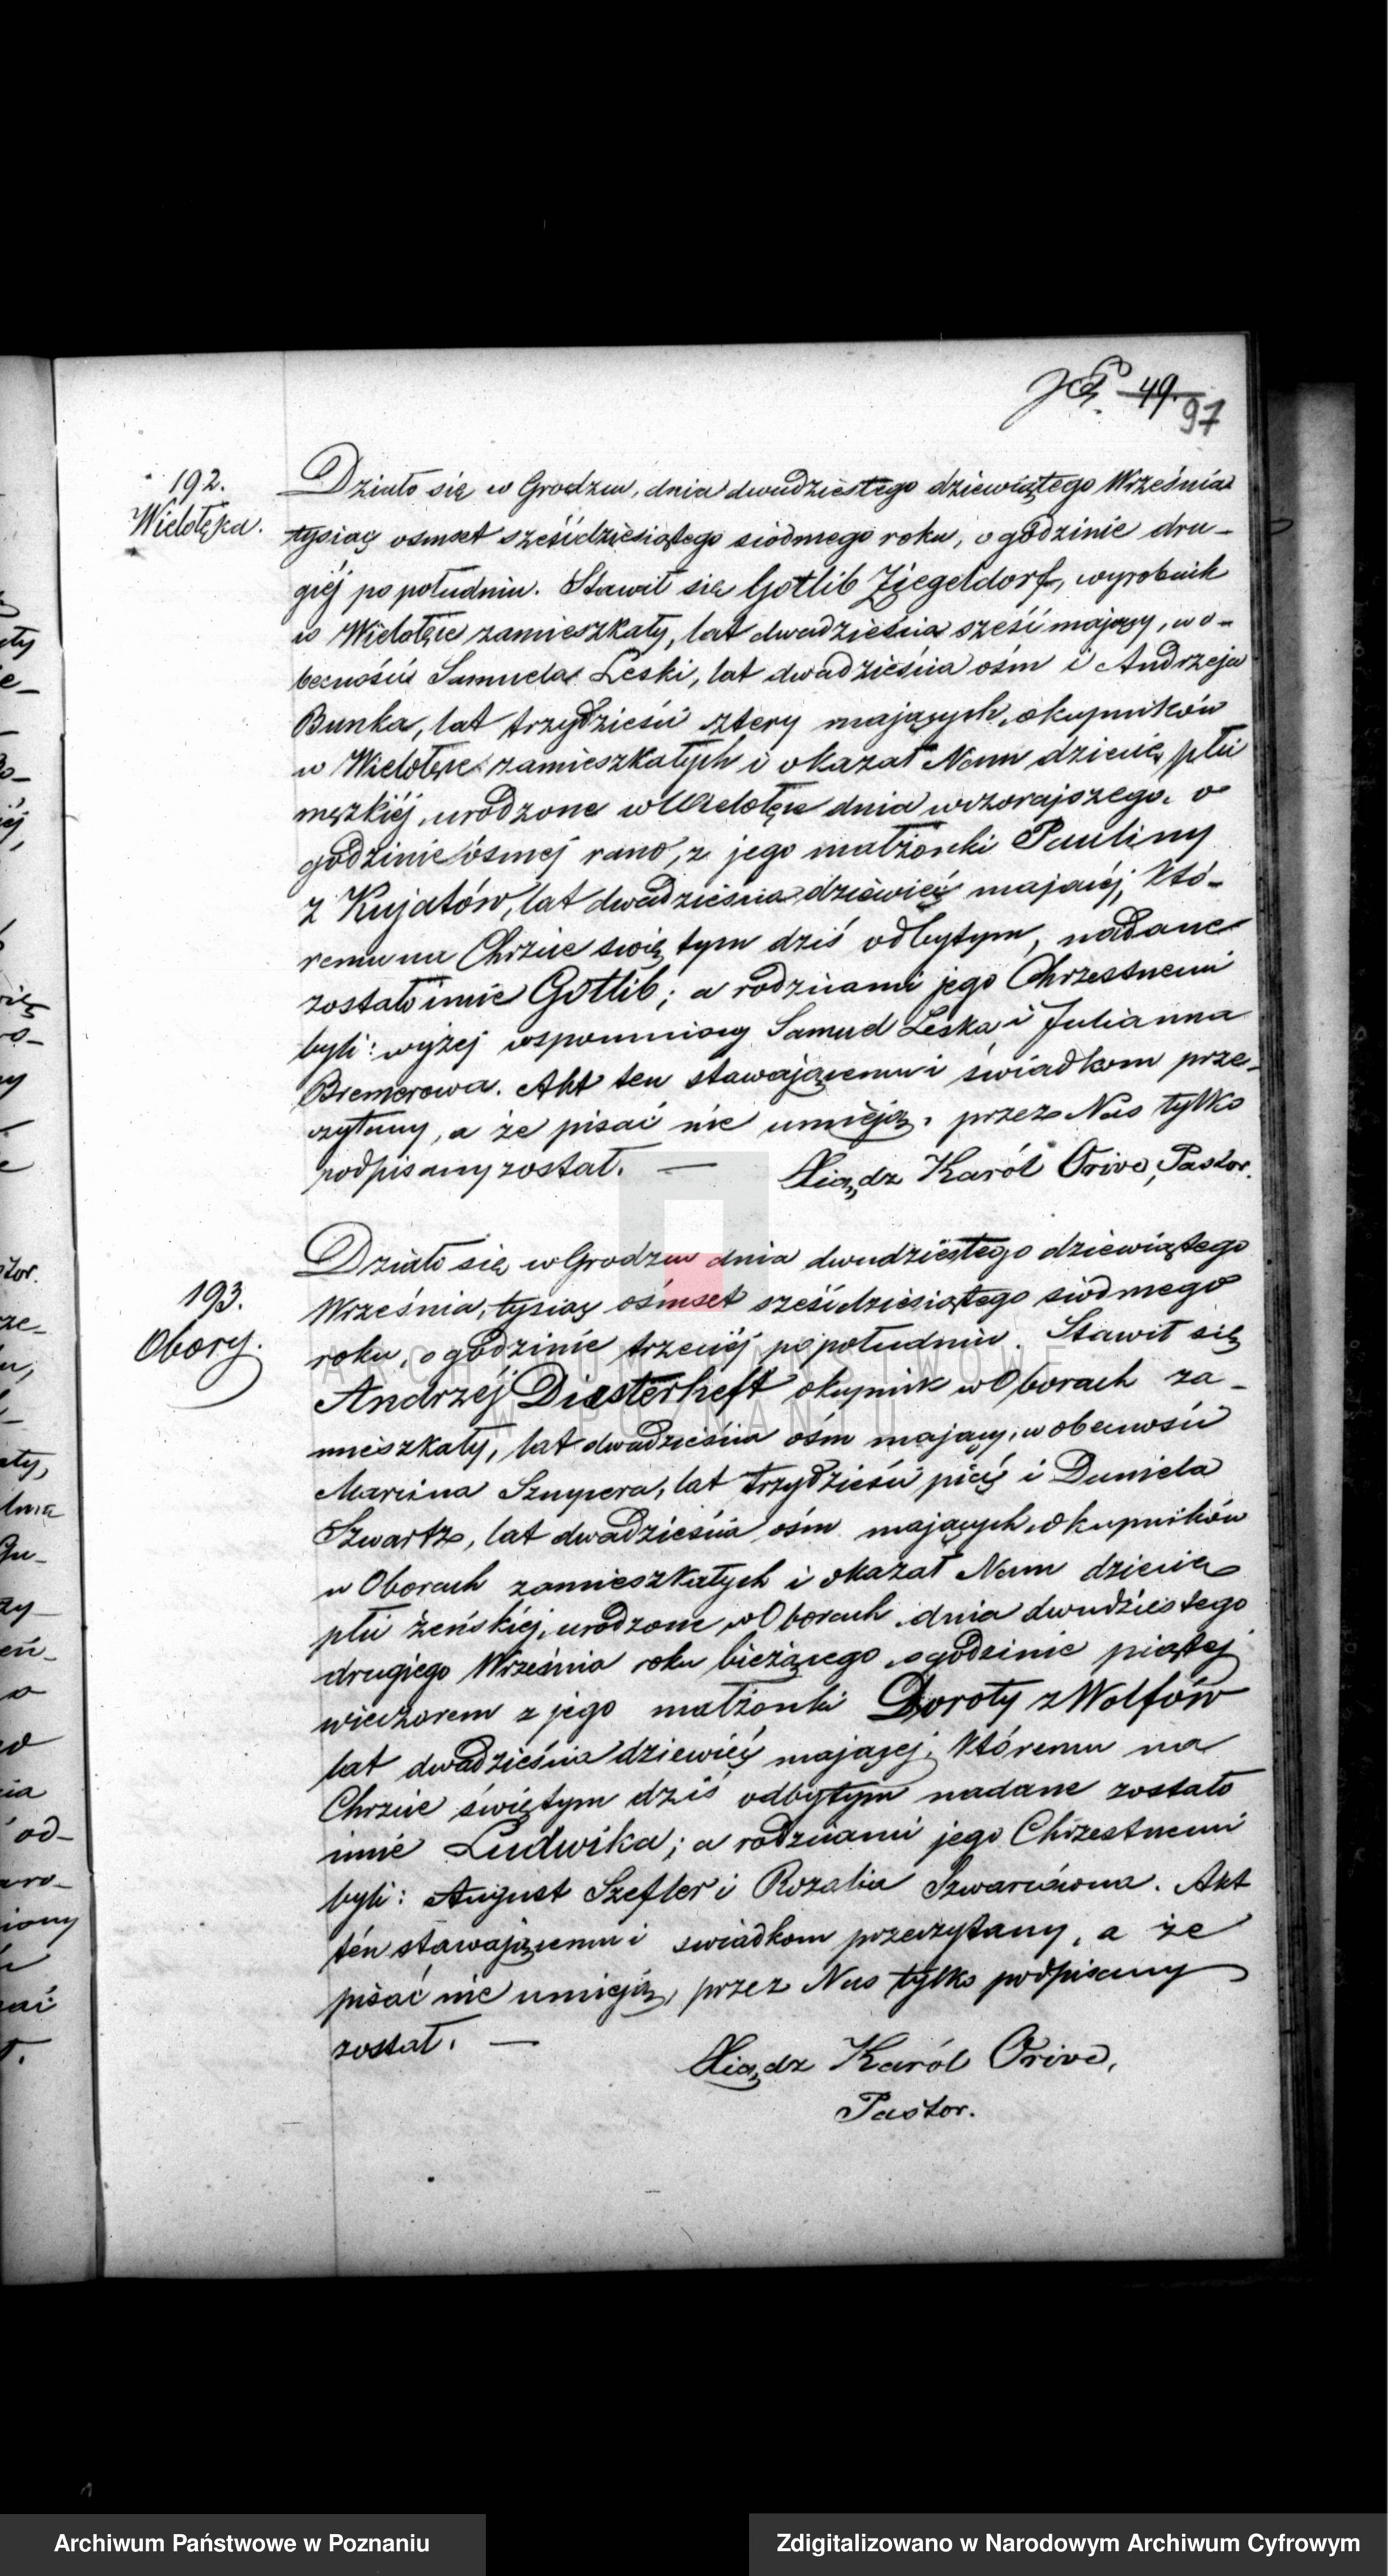 49.
97
192.
Wielołęka.
Działo się w Grodzcu, dnia dwudziestego dziewiątego Września
tysiąc osmset sześćdziesiątego siódmego roku, o godzinie dru-
giéj po południu. Stawił się Gotlib Ziegeldorf, wyrobnik
w Wielołęce zamieszkały, lat dwadzieścia sześć mający, w o-
becności Samuela Leski, lat dwadzieścia ośm i Andrzeja
Bunka, lat trzydzieści cztery mających, okupników
w Wielołęce zamieszkałych i okazał Nam dziecię płci
męzkiéj, urodzone w Wielołęce dnia wczorajszego, o
godzinie ósmej rano, z jego małżonki Pauliny
z Kujatów, lat dwadzieścia dziewięć mającéj, któ-
remu na Chrzcie świętym dziś odbytym, nadane
zostało imie Gotlib; a rodzicami jego Chrzestnemi
byli: wyżej wspomniony Samuel Leska i Julianna
Bremerowa. Akt ten stawającemu i świadkom prze-
czytany, a że pisać nie umieją, przez Nas tylko
podpisany został. — Xiądz Karól Orive, Pastor.
193.
Obory.
Działo się w Grodzcu dnia dwudziestego dziewiątego
Września, tysiąc ośmset sześćdziesiątego siódmego
roku, o godzinie trzeciéj po południu. Stawił się
Andrzej Diesterheft okupnik w Oborach za-
mieszkały, lat dwadzieścia ośm mający, w obecności
Marcina Sznypera, lat trzydzieści pięć i Daniela
Szwartz, lat dwadzieścia ośm mających, okupników
w Oborach zamieszkałych i okazał Nam dziecię
płci żeńskiéj, urodzone w Oborach dnia dwudziestego
drugiego Września roku bieżącego, o godzinie piątej
wieczorem z jego małżonki Doroty z Wolfów
lat dwadzieścia dziewięć mającej, któremu na
Chrzcie świętym dziś odbytym nadane zostało
imie Ludwika; a rodzicami jego Chrzestnemi
byli: August Szefler i Rozalia Szwarcówna. Akt
ten stawającemu i swiadkom przeczytany, a że
pisać nie umieją, przez Nas tylko podpisany
został. —
Xiądz Karól Orive,
Pastor.
ARCHIWUM PAŃSTWOWE
W POZNANIU
Archiwum Państwowe w Poznaniu
Zdigitalizowano w Narodowym Archiwum Cyfrowym